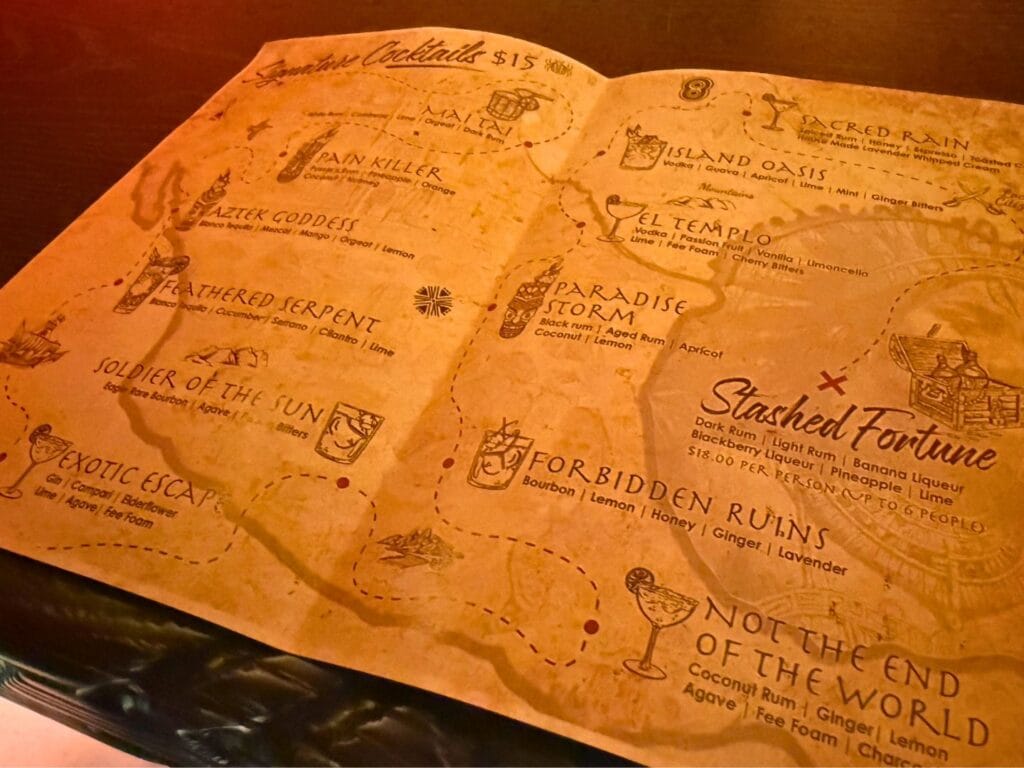 Signature Cocktails $15
MAI TAI
Lime | Orgeat | Dark Rum
PAIN KILLER
Pineapple | Orange
Coconut | Nutmeg
AZTEK GODDESS
Blanco Tequila | Mezcal | Mango | Orgeat | Lemon
FEATHERED SERPENT
Blanco Tequila | Cucumber | Serrano | Cilantro | Lime
SOLDIER OF THE SUN
Eagle Rare Bourbon | Agave | Bitters
EXOTIC ESCAP
Gin | Campari | Elderflower
Lime | Agave | Fee Foam
SACRED RAIN
Spiced Rum | Honey | Espresso | Toasted
House Made Lavender Whipped Cream
ISLAND OASIS
Vodka | Guava | Apricot | Lime | Mint | Ginger Bitters
Mountains
EL TEMPLO
Vodka | Passion Fruit | Vanilla | Limoncello
Lime | Fee Foam | Cherry Bitters
PARADISE
STORM
Black rum | Aged Rum | Apricot
Coconut | Lemon
Stashed Fortune
Dark Rum | Light Rum | Banana Liqueur
Blackberry Liqueur | Pineapple | Lime
$18.00 PER PERSON (UP TO 6 PEOPLE)
FORBIDDEN RUINS
Bourbon | Lemon | Honey | Ginger | Lavender
NOT THE END
OF THE WORLD
Coconut Rum | Ginger | Lemon
Agave | Fee Foam | Charco